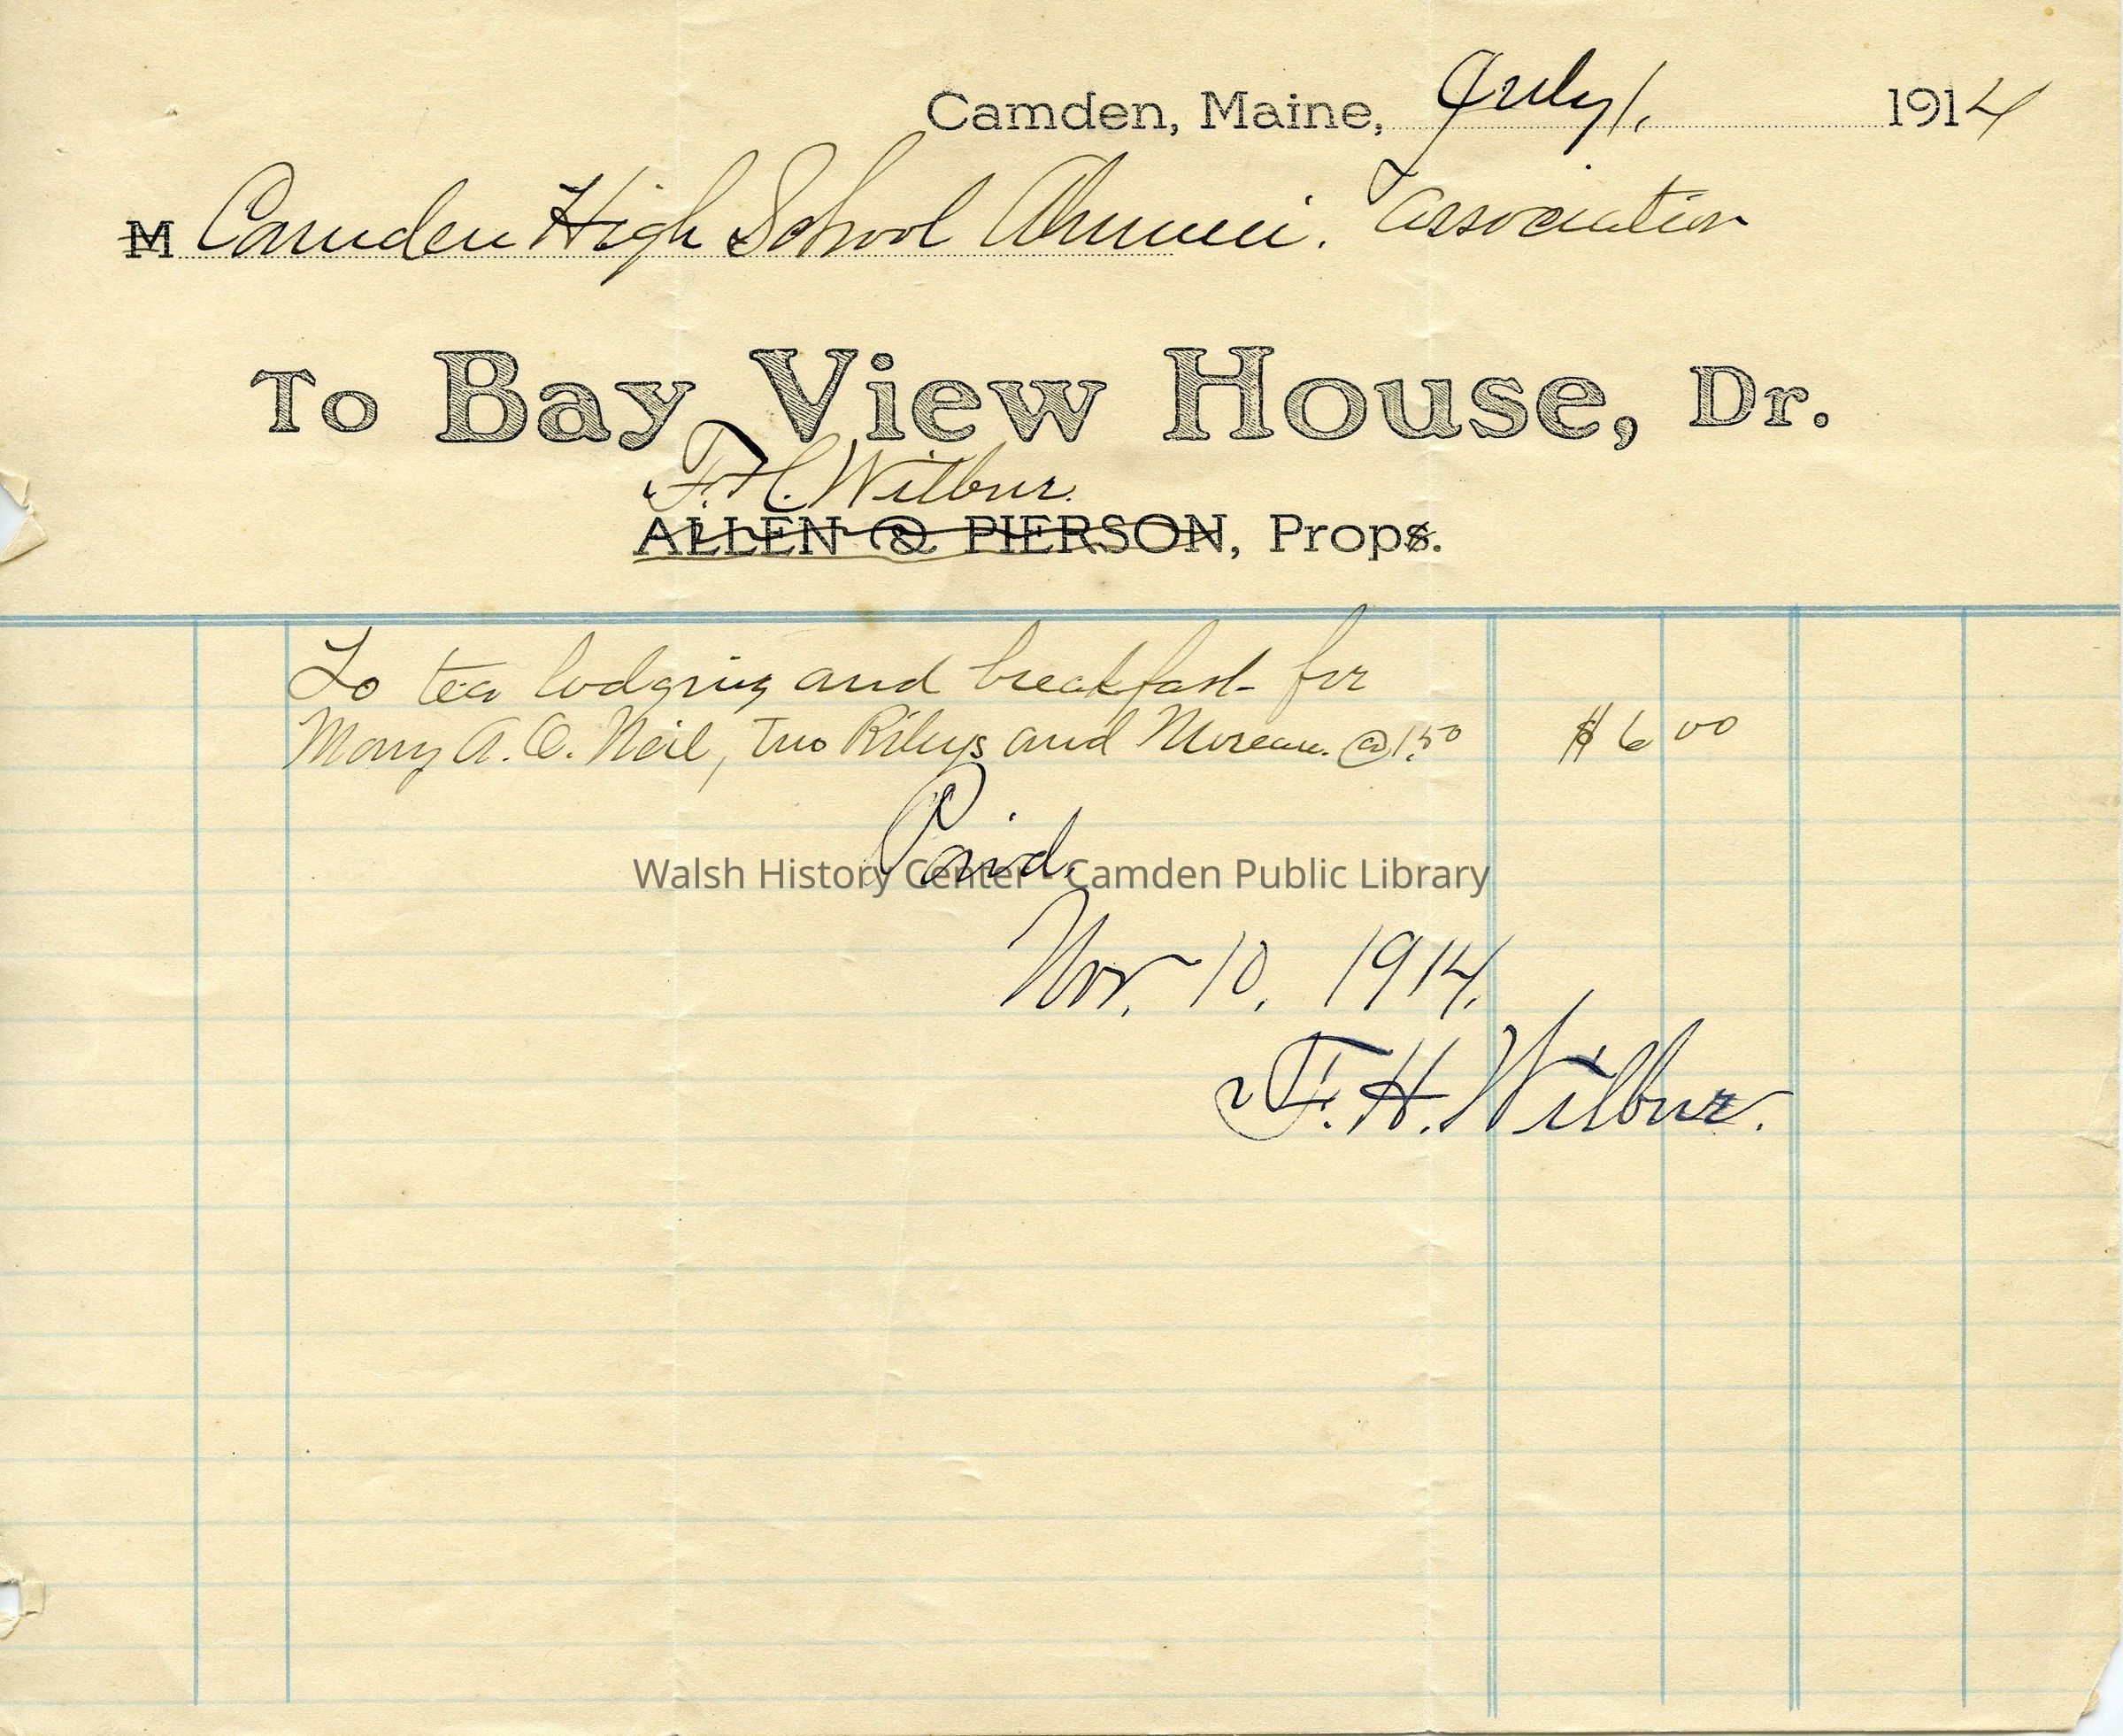 Camden, Maine, July 1, 1914
M Camden High School Alumni. Association
To Bay View House, Dr.
F. H. Wilbur.
ALLEN & PIERSON, Props.
To tea lodging and breakfast for
Mary A. O. Neil, Two Rileys and Moreau. @ 1.50 $6 00
Paid.
Walsh History Center - Camden Public Library
Nov. 10, 1914.
F. H. Wilbur.